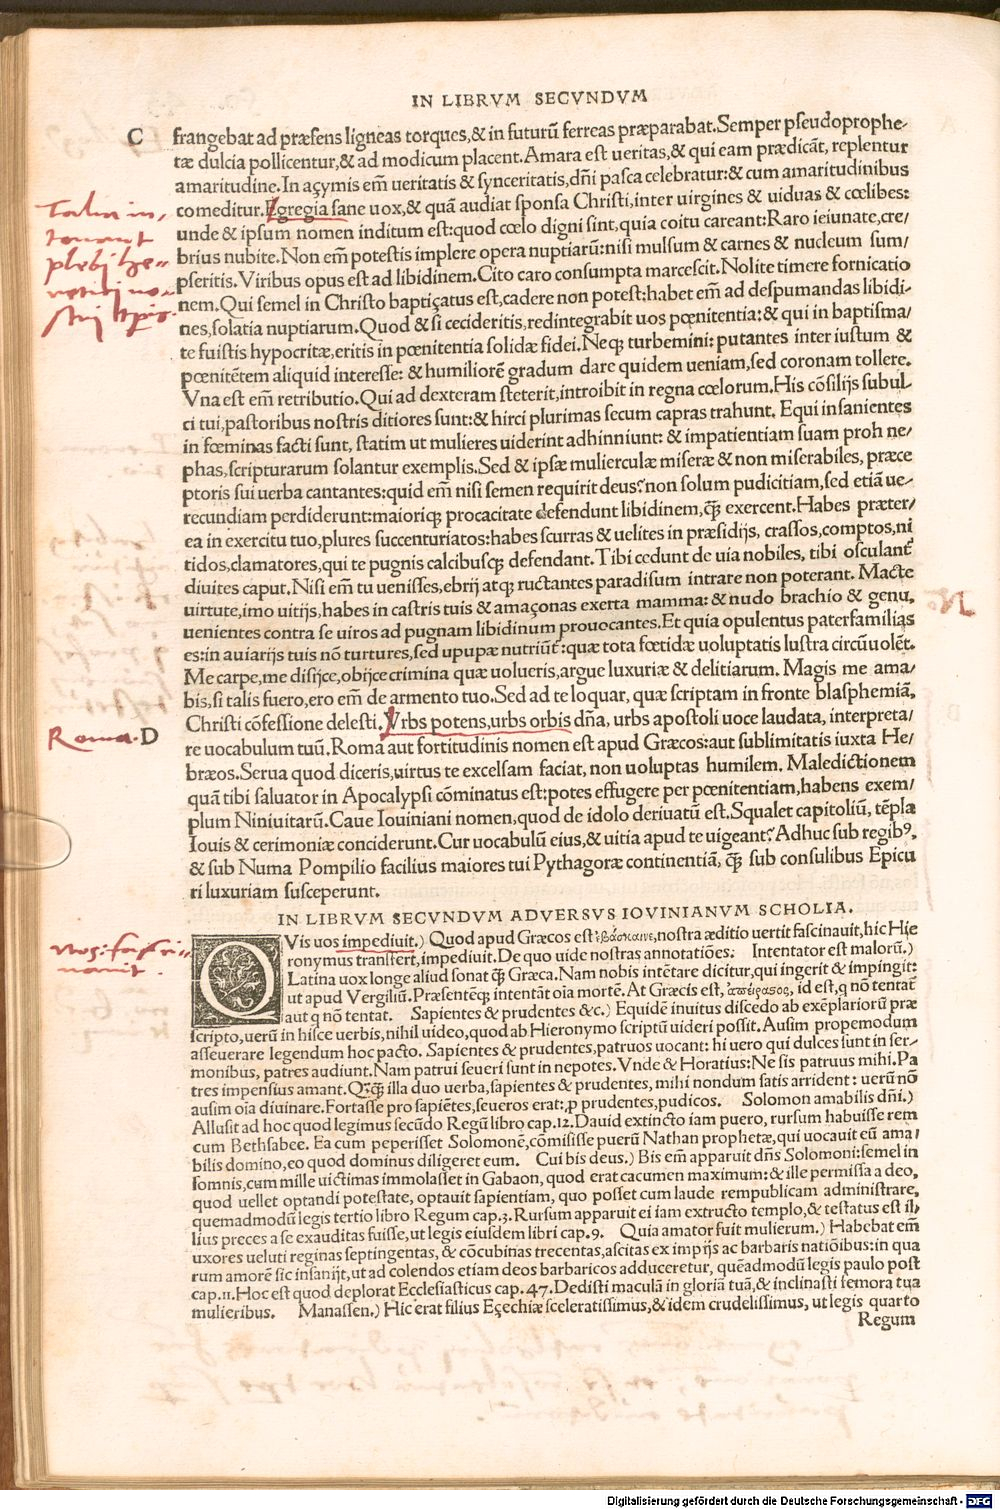 IN LIBRVM SECVNDVM
C
frangebat ad præsens ligneas torques,& in futurū ferreas præparabat.Semper pseudoprophe-
tæ dulcia pollicentur,& ad modicum placent.Amara est ueritas,& qui eam prædicāt, replentur
amaritudine.In açymis em̄ ueritatis & synceritatis,dn̄i pasca celebratur:& cum amaritudinibus
comeditur.Egregia sane uox,& quā audiat sponsa Christi,inter uirgines & uiduas & cœlibes:
unde & ipsum nomen inditum est:quod cœlo digni sint,quia coitu careant:Raro ieiunate,cre/
brius nubite.Non em̄ potestis implere opera nuptiarū:nisi mulsum & carnes & nucleum sum/
pseritis.Viribus opus est ad libidinem.Cito caro consumpta marcescit.Nolite timere fornicatio
nem.Qui semel in Christo baptiçatus est,cadere non potest:habet em̄ ad despumandas libidi-
nes,solatia nuptiarum.Quod & si cecideritis,redintegrabit uos pœnitentia:& qui in baptisma/
te fuistis hypocritæ,eritis in pœnitentia solidæ fidei.Neqȝ turbemini: putantes inter iustum &
pœnitētem aliquid interesse: & humiliorē gradum dare quidem ueniam,sed coronam tollere.
Vna est em̄ retributio.Qui ad dexteram steterit,introibit in regna cœlorum.His cōsilijs subul
ci tui,pastoribus nostris ditiores sunt:& hirci plurimas secum capras trahunt. Equi insanientes
in fœminas facti sunt, statim ut mulieres uiderint adhinniunt: & impatientiam suam proh ne/
phas,scripturarum solantur exemplis.Sed & ipsæ mulierculæ miseræ & non miserabiles, præce
ptoris sui uerba cantantes:quid em̄ nisi semen requirit deus? non solum pudicitiam,sed etiā ue-
recundiam perdiderunt:maioriqȝ procacitate defendunt libidinem,q̄ȝ exercent.Habes præter/
ea in exercitu tuo,plures succenturiatos:habes scurras & uelites in præsidijs, crassos,comptos,ni
tidos,clamatores,qui te pugnis calcibusqȝ defendant.Tibi cedunt de uia nobiles, tibi osculant̄
diuites caput.Nisi em̄ tu uenisses,ebrij atqȝ ructantes paradisum intrare non poterant. Macte
uirtute,imo uitijs,habes in castris tuis & amaçonas exerta mamma: & nudo brachio & genu,
uenientes contra se uiros ad pugnam libidinum prouocantes.Et quia opulentus paterfamilias
es:in auiarijs tuis nō turtures,sed upupæ nutriūt̄:quæ tota fœtidæ uoluptatis lustra circūuolēt̄.
Me carpe,me disijce,obijce crimina quæ uolueris,argue luxuriæ & delitiarum. Magis me ama/
bis,si talis fuero,ero em̄ de armento tuo.Sed ad te loquar, quæ scriptam in fronte blasphemiā,
Christi cōfessione delesti.Vrbs potens,urbs orbis dn̄a, urbs apostoli uoce laudata, interpreta/
re uocabulum tuū.Roma aut fortitudinis nomen est apud Græcos:aut sublimitatis iuxta He/
bræos.Serua quod diceris,uirtus te excelsam faciat, non uoluptas humilem. Maledictionem
quā tibi saluator in Apocalypsi cōminatus est:potes effugere per pœnitentiam,habens exem/
plum Niniuitarū.Caue Iouiniani nomen,quod de idolo deriuatū est.Squalet capitoliū, tēpla
Iouis & cerimoniæ conciderunt.Cur uocabulū eius,& uitia apud te uigeant? Adhuc sub regibꝰ,
& sub Numa Pompilio facilius maiores tui Pythagoræ continentiā, q̄ȝ sub consulibus Epicu
ri luxuriam susceperunt.
Roma. D
IN LIBRVM SECVNDVM ADVERSVS IOVINIANVM SCHOLIA.
QVis uos impediuit.) Quod apud Græcos est ἐβάσκαινε,nostra æditio uertit fascinauit,hic Hie
ronymus transtert,impediuit.De quo uide nostras annotatiōes: Intentator est malorū.)
Latina uox longe aliud sonat q̄ȝ Græca.Nam nobis intētare dicitur,qui ingerit & impingit:
ut apud Vergiliū.Præsentēqȝ intentāt oīa mortē.At Græcis est, ἀπείρασος, id est,q nō tentat̄
aut q nō tentat. Sapientes & prudentes &c.) Equidē inuitus discedo ab exēplariorū præ
scripto,uerū in hisce uerbis,nihil uideo,quod ab Hieronymo scriptū uideri possit. Ausim propemodum
asseuerare legendum hoc pacto. Sapientes & prudentes,patruos uocant: hi uero qui dulces sunt in ser-
monibus, patres audiunt.Nam patrui seueri sunt in nepotes.Vnde & Horatius:Ne sis patruus mihi.Pa
tres impensius amant.Q̄ȝq̄ȝ illa duo uerba,sapientes & prudentes, mihi nondum satis arrident : uerū nō
ausim oīa diuinare.Fortasse pro sapiētes,seueros erat:,p prudentes,pudicos. Solomon amabilis dn̄i.)
Allusit ad hoc quod legimus secūdo Regū libro cap.12.Dauid extincto iam puero, rursum habuisse rem
cum Bethsabee. Ea cum peperisset Solomonē,cōmisisse puerū Nathan prophetæ,qui uocauit eū ama/
bilis domino,eo quod dominus diligeret eum. Cui bis deus.) Bis em̄ apparuit dn̄s Solomoni:semel in
somnis,cum mille uictimas immolasset in Gabaon, quod erat cacumen maximum:& ille permissa a deo,
quod uellet optandi potestate, optauit sapientiam, quo posset cum laude rempublicam administrare,
quemadmodū legis tertio libro Regum cap.3. Rursum apparuit ei iam extructo templo,& testatus est il/
lius preces a se exauditas fuisse,ut legis eiusdem libri cap.9. Quia amator fuit mulierum.) Habebat em̄
uxores ueluti reginas septingentas, & cōcubinas trecentas,ascitas ex impijs ac barbaris natiōibus:in qua
rum amorē sic insanijt,ut ad colendos etiam deos barbaricos adduceretur, quēadmodū legis paulo post
cap.11.Hoc est quod deplorat Ecclesiasticus cap.47.Dedisti maculā in gloriā tuā,& inclinasti femora tua
mulieribus. Manassen.) Hic erat filius Eçechiæ sceleratissimus,& idem crudelissimus, ut legis quarto
Regum
Digitalisierung gefördert durch die Deutsche Forschungsgemeinschaft - DFG